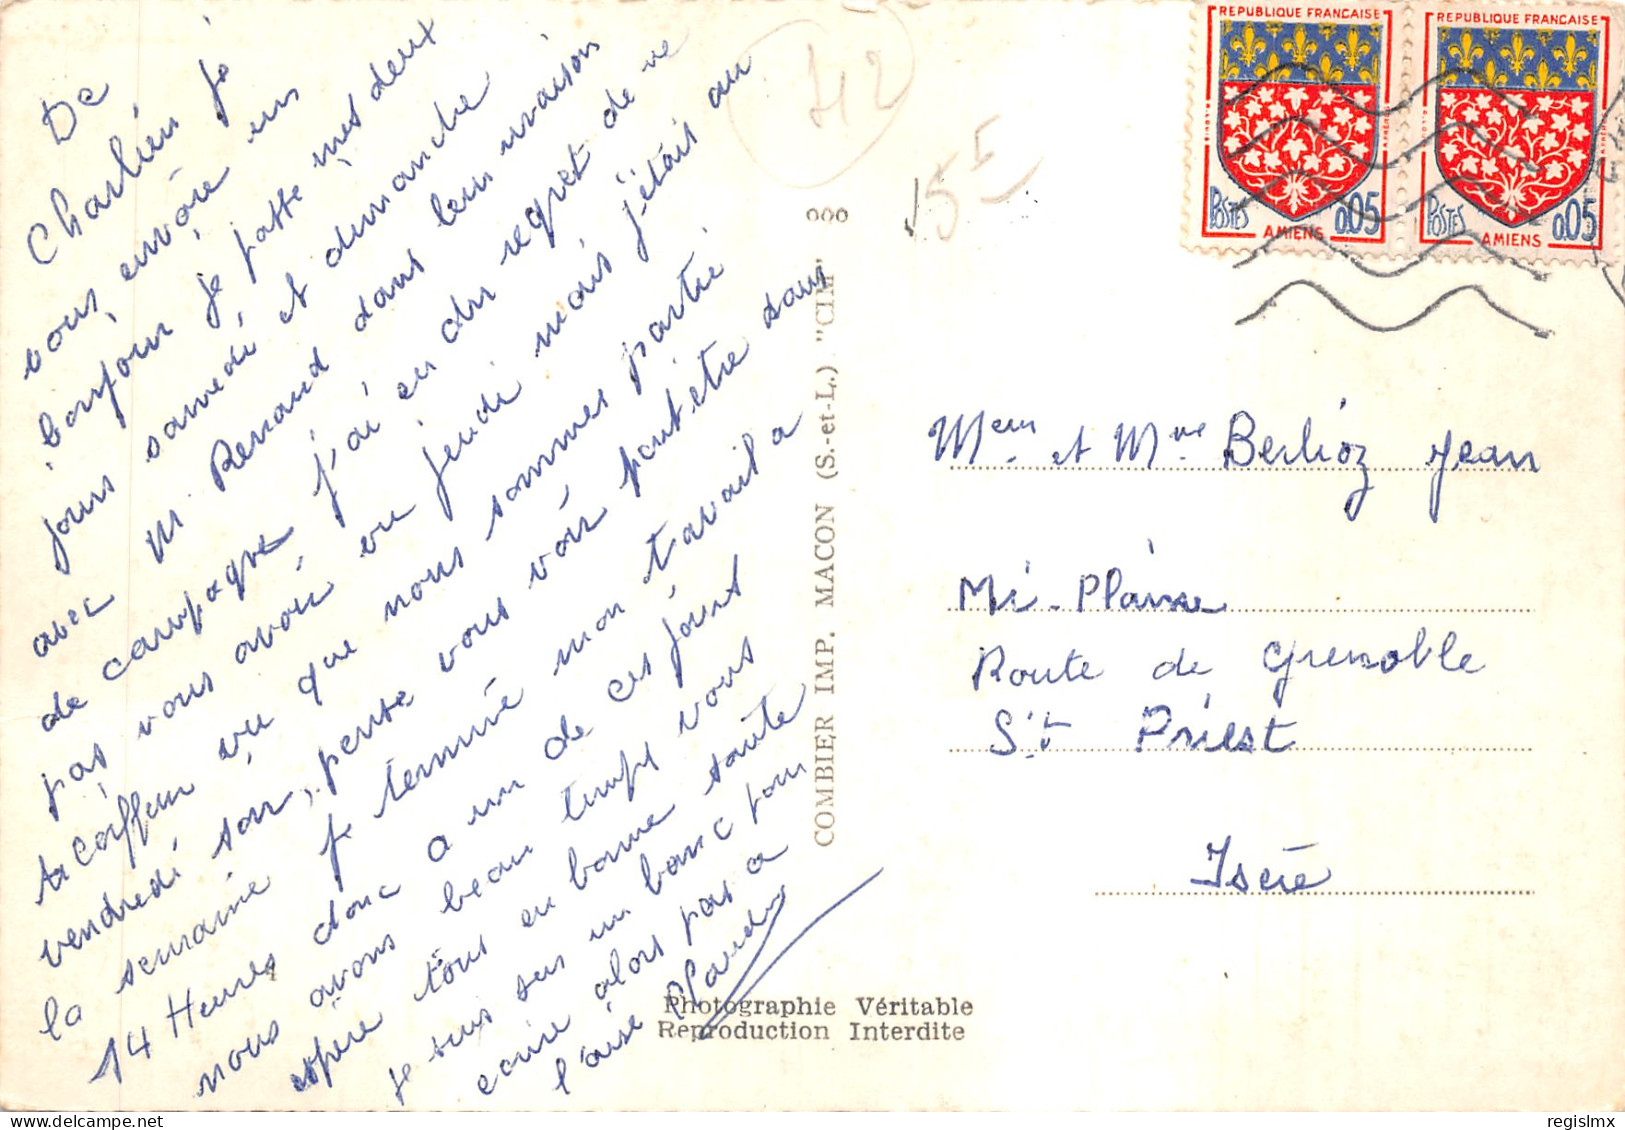 De
Charlieu je
vous envoie un
bonjour je passe mes deux
jours samedi et dimanche
avec M. Renaud dans leur maison
de campagne j'ai eu du regret de ne
pas vous avoir vu jeudi mais j'étais au
coiffeur vu que nous sommes partie
vendredi soir, pense vous voir peut être dans
la semaine je terminé mon travail a
14 Heures donc a un de ces jours
nous avons beau temps vous
espère tous en bonne sante
je suis sur un banc pour
ecrire alors pas a
l'aise
Photographie Véritable
Reproduction Interdite
COMBIER IMP. MACON (S.-et-L.) "CIM"
42
15 F
REPUBLIQUE FRANÇAISE
POSTES 0,05
AMIENS
REPUBLIQUE FRANÇAISE
POSTES 0,05
AMIENS
et Mme Berlioz Jean
Mi-Plaine
Route de Grenoble
St Priest
Isère
regislmx